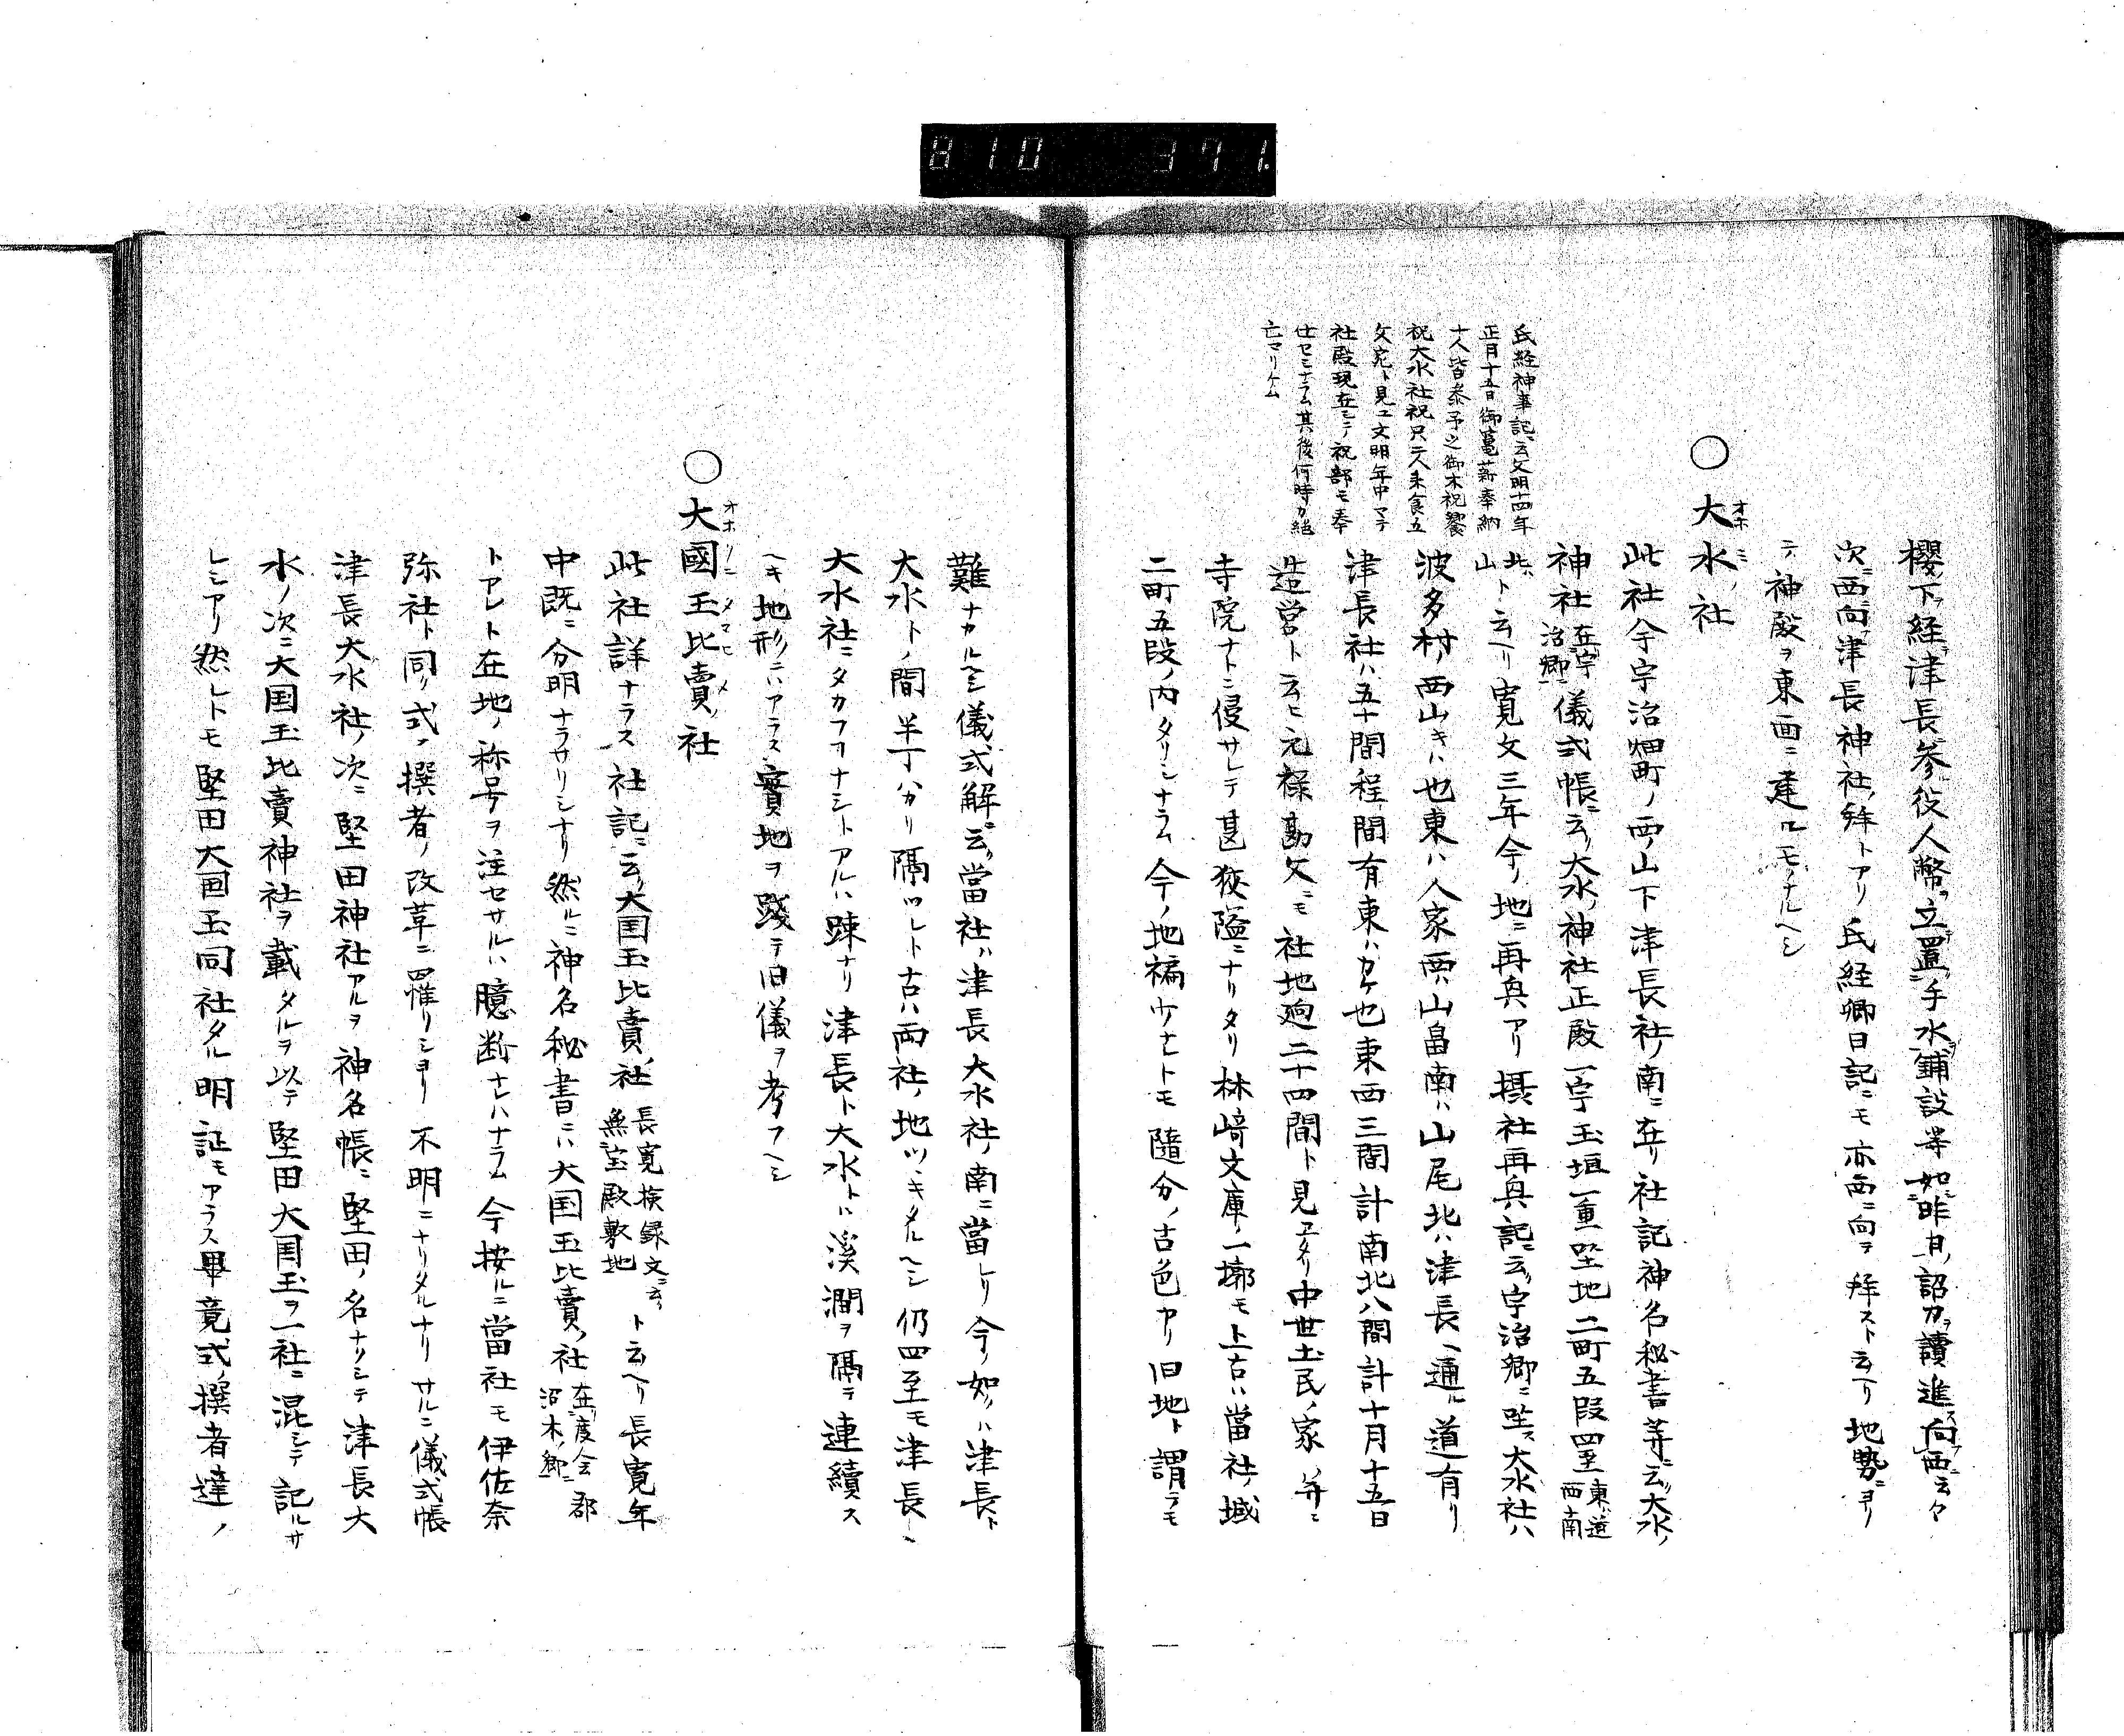 810 371.
櫻ノ下ヲ経テ津長ニ参役人幣ヲ立置キ手水鋪設等如昨日詔刀ヲ讀進ス向西ニ云々
次ニ西向津長神社ノ拜トアリ氏経卿日記ニモ亦西ニ向ヲ拜ストエヘリ地勢ニヨリ
テ神殿ヲ東面ニ建ルモノナルヘシ
○大水ノ社
オホミノ
此社今宇治畑町ノ西ノ山下津長社ノ南ニ在リ社記神名秘書等ニ云フ大水ノ
神社 在宇治郷ニ 儀式帳ニ云フ大水ノ神社正殿一宇玉垣一重坐地二町五段四至 東ハ道西南
北ハ山 ト云ヘリ寛文三年今ノ地ニ再興アリ摂社再興記ニ云フ宇治郷ニ坐ス大水社ハ
波多村ノ西山ノキハ也東ハ人家西ハ山畠南ハ山尾北ハ津長ヘ通ル道有リ
津長社ハ五十間程間有東ハカケ也東西三間計南北八間計十月十五日
造営ト云ヒ元禄勘文ニモ社地廻二十四間ト見エタリ中世土民ノ家并ニ
寺院ナトニ侵サレテ甚狹隘ニナリタリ林﨑文庫ノ一墎モ上古ハ當社ノ域
二町五段ノ内タリシナラム今ノ地褊少ナレトモ隨分ノ古色アリ旧地ト謂ラモ
氏経神事記ニ云文明十四年
正月十五日御竃薪奉納
十人皆参予之御木祝饗
祝大水社祝只二人未食五
文宛ト見ユ文明年中マテ
社殿現在シテ祝部モ奉
仕セシナラム其後何時カ絶
亡マリケム
難ナカルヘシ儀式解ニ云フ當社ハ津長大水社ノ南ニ當レリ今ノ如クハ津長ト
大水トノ間半丁ハカリ隔ツレト古ハ両社ノ地ツヽキタルヘシ仍四至モ津長ハ
大水社ニタカフコナシトアルハ踈ナリ津長ト大水トハ溪澗ヲ隔テ連續ス
ヘキ地形ノニハアラス實地ヲ踐テ旧儀ヲ考フヘシ
○大國玉比賣ノ社
オホクニタマヒメノ
此社詳ナラス社記ニ云フ大国玉比賣ノ社 長寛検録文ニ云フ無宝殿敷地 ト云ヘリ長寛年
中既ニ分明ナラサリシナリ然ルニ神名秘書ニハ大国玉比賣ノ社 在度会郡沼木ノ郷ニ
トアレト在地ノ称号ヲ注セサルハ臆断ナレハナラム今按ルニ當社モ伊佐奈
弥社ト同ク式ノ撰者ノ改革ニ罹リショリ不明ニナリタルナリサルニ儀式帳
津長大水社ノ次ニ堅田神社アルヲ神名帳ニ堅田ノ名ナクシテ津長大
水ノ次ニ大国玉比賣神社ヲ載タルヲ以テ堅田大国玉ヲ一社ニ混シテ記ルサ
レシアリ然レトモ堅田大国玉同社タル明証モアラス畢竟式ノ撰者達ノ